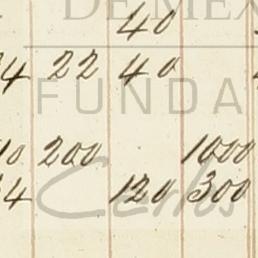 DE MEX
40
4 22 40
FUNDA
10 200 1000
4 120 300
Carlos